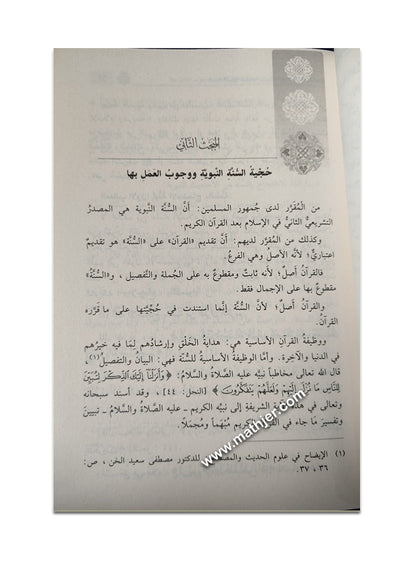 المبحث الثاني
حُجِّيةُ السُّنَّة النَّبويَّة ووجوبُ العَمَل بها
من الْمُقَرَّر لدى جُمهور المسلمين: أنَّ السُّنَّة النَّبوية هي المصدرُ
التشريعيُّ الثانيُّ في الإسلام بعد القرآن الكريم.
وكذلك من المُقرَّر لديهم: أنَّ تقديم «القرآن» على «السُّنَّة» هو تقديمٌ
اعتباريٌّ؛ لأنَّه الأصلُ وهي الفرعُ.
فالقرآنُ أصلٌ؛ لأنَّه ثابتٌ ومقطوعٌ به على الجُملة والتَّفصيل، و«السُّنَّة»
مقطوعٌ بها على الإجمال فقط.
والقرآن أصلٌ؛ لأنَّ السنَّةَ إنَّما استندت في حُجِّيَّتها على ما قَرَّره
القرآنُ.
ووظيفةُ القرآن الأساسية هي: هدايةُ الخَلْق وإرشادُهم لِمَا فيه خيرُهم
في الدنيا والآخِرة. وأمَّا الوظيفةُ الأساسيةُ للسُّنَّة فهي: البيانُ والتفصيلُ(١)،
قال الله تعالى مخاطباً نبيَّه عليه الصَّلاةُ والسَّلامُ: ﴿وَأَنزَلْنَآ إِلَيْكَ ٱلذِّكْرَ لِتُبَيِّنَ
لِلنَّاسِ مَا نُزِّلَ إِلَيْهِمْ وَلَعَلَّهُمْ يَتَفَكَّرُونَ﴾ [النحل: ٤٤]، وقد أسند سبحانه
وتعالى في هذه الآية الشريفةِ إلى نبيِّه الكريم ـ عليه الصَّلاةُ والسَّلامُ ـ تبيينَ
وتفسيرَ مَا جاء في القرآن الكريم مُبْهَماً ومُجمَلاً.
(١) الإيضاح في علوم الحديث والمصطلح للدكتور مصطفى سعيد الخن، ص:
٣٦، ٣٧.
www.mathjer.com